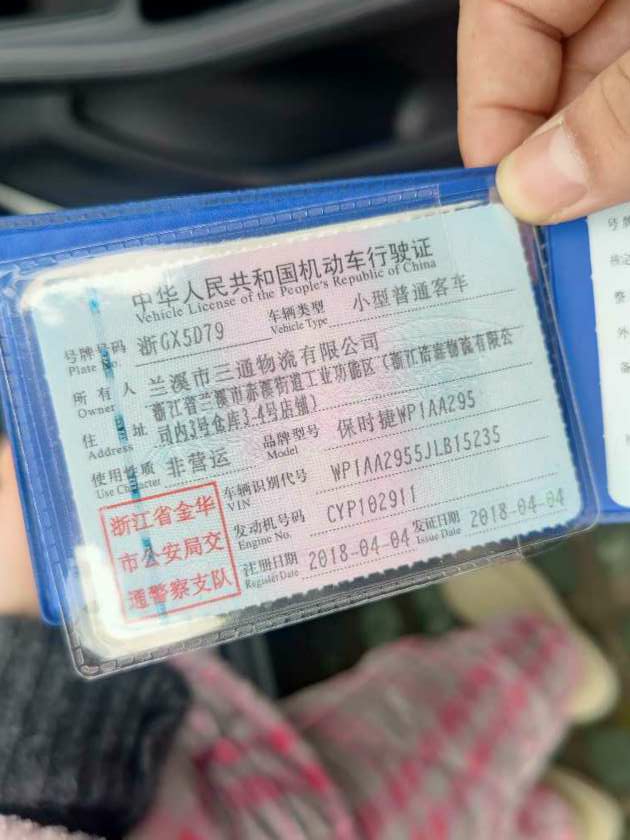 中华人民共和国机动车行驶证
Vehicle License of the People's Republic of China
号牌号码 浙GX5D79 车辆类型 小型普通客车
Plate No. Vehicle Type
所有人 兰溪市三通物流有限公司
Owner
住址 浙江省兰溪市赤溪街道工业功能区(浙江浩嘉物流有限公
Address 司内3号仓库3-4号店铺)
使用性质 非营运 品牌型号 保时捷WP1AA295
Use Character Model
车辆识别代号 WP1AA2955JLB15235
VIN
发动机号码 CYP102911
Engine No.
注册日期 2018-04-04 发证日期 2018-04-04
Register Date Issue Date
浙江省金华
市公安局交
通警察支队